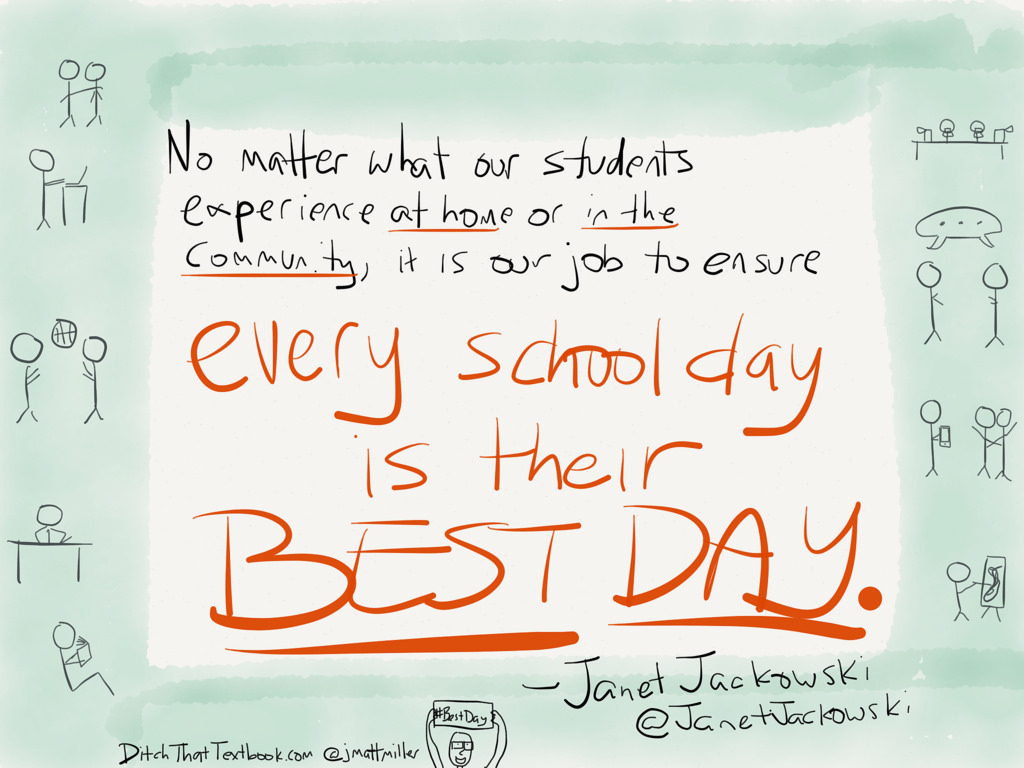 No matter what our students
experience at home or in the
community, it is our job to ensure
every school day
is their
BEST DAY.
- Janet Jackowski
@JanetJackowski
#BestDay
DitchThatTextbook.com @jmattmiller